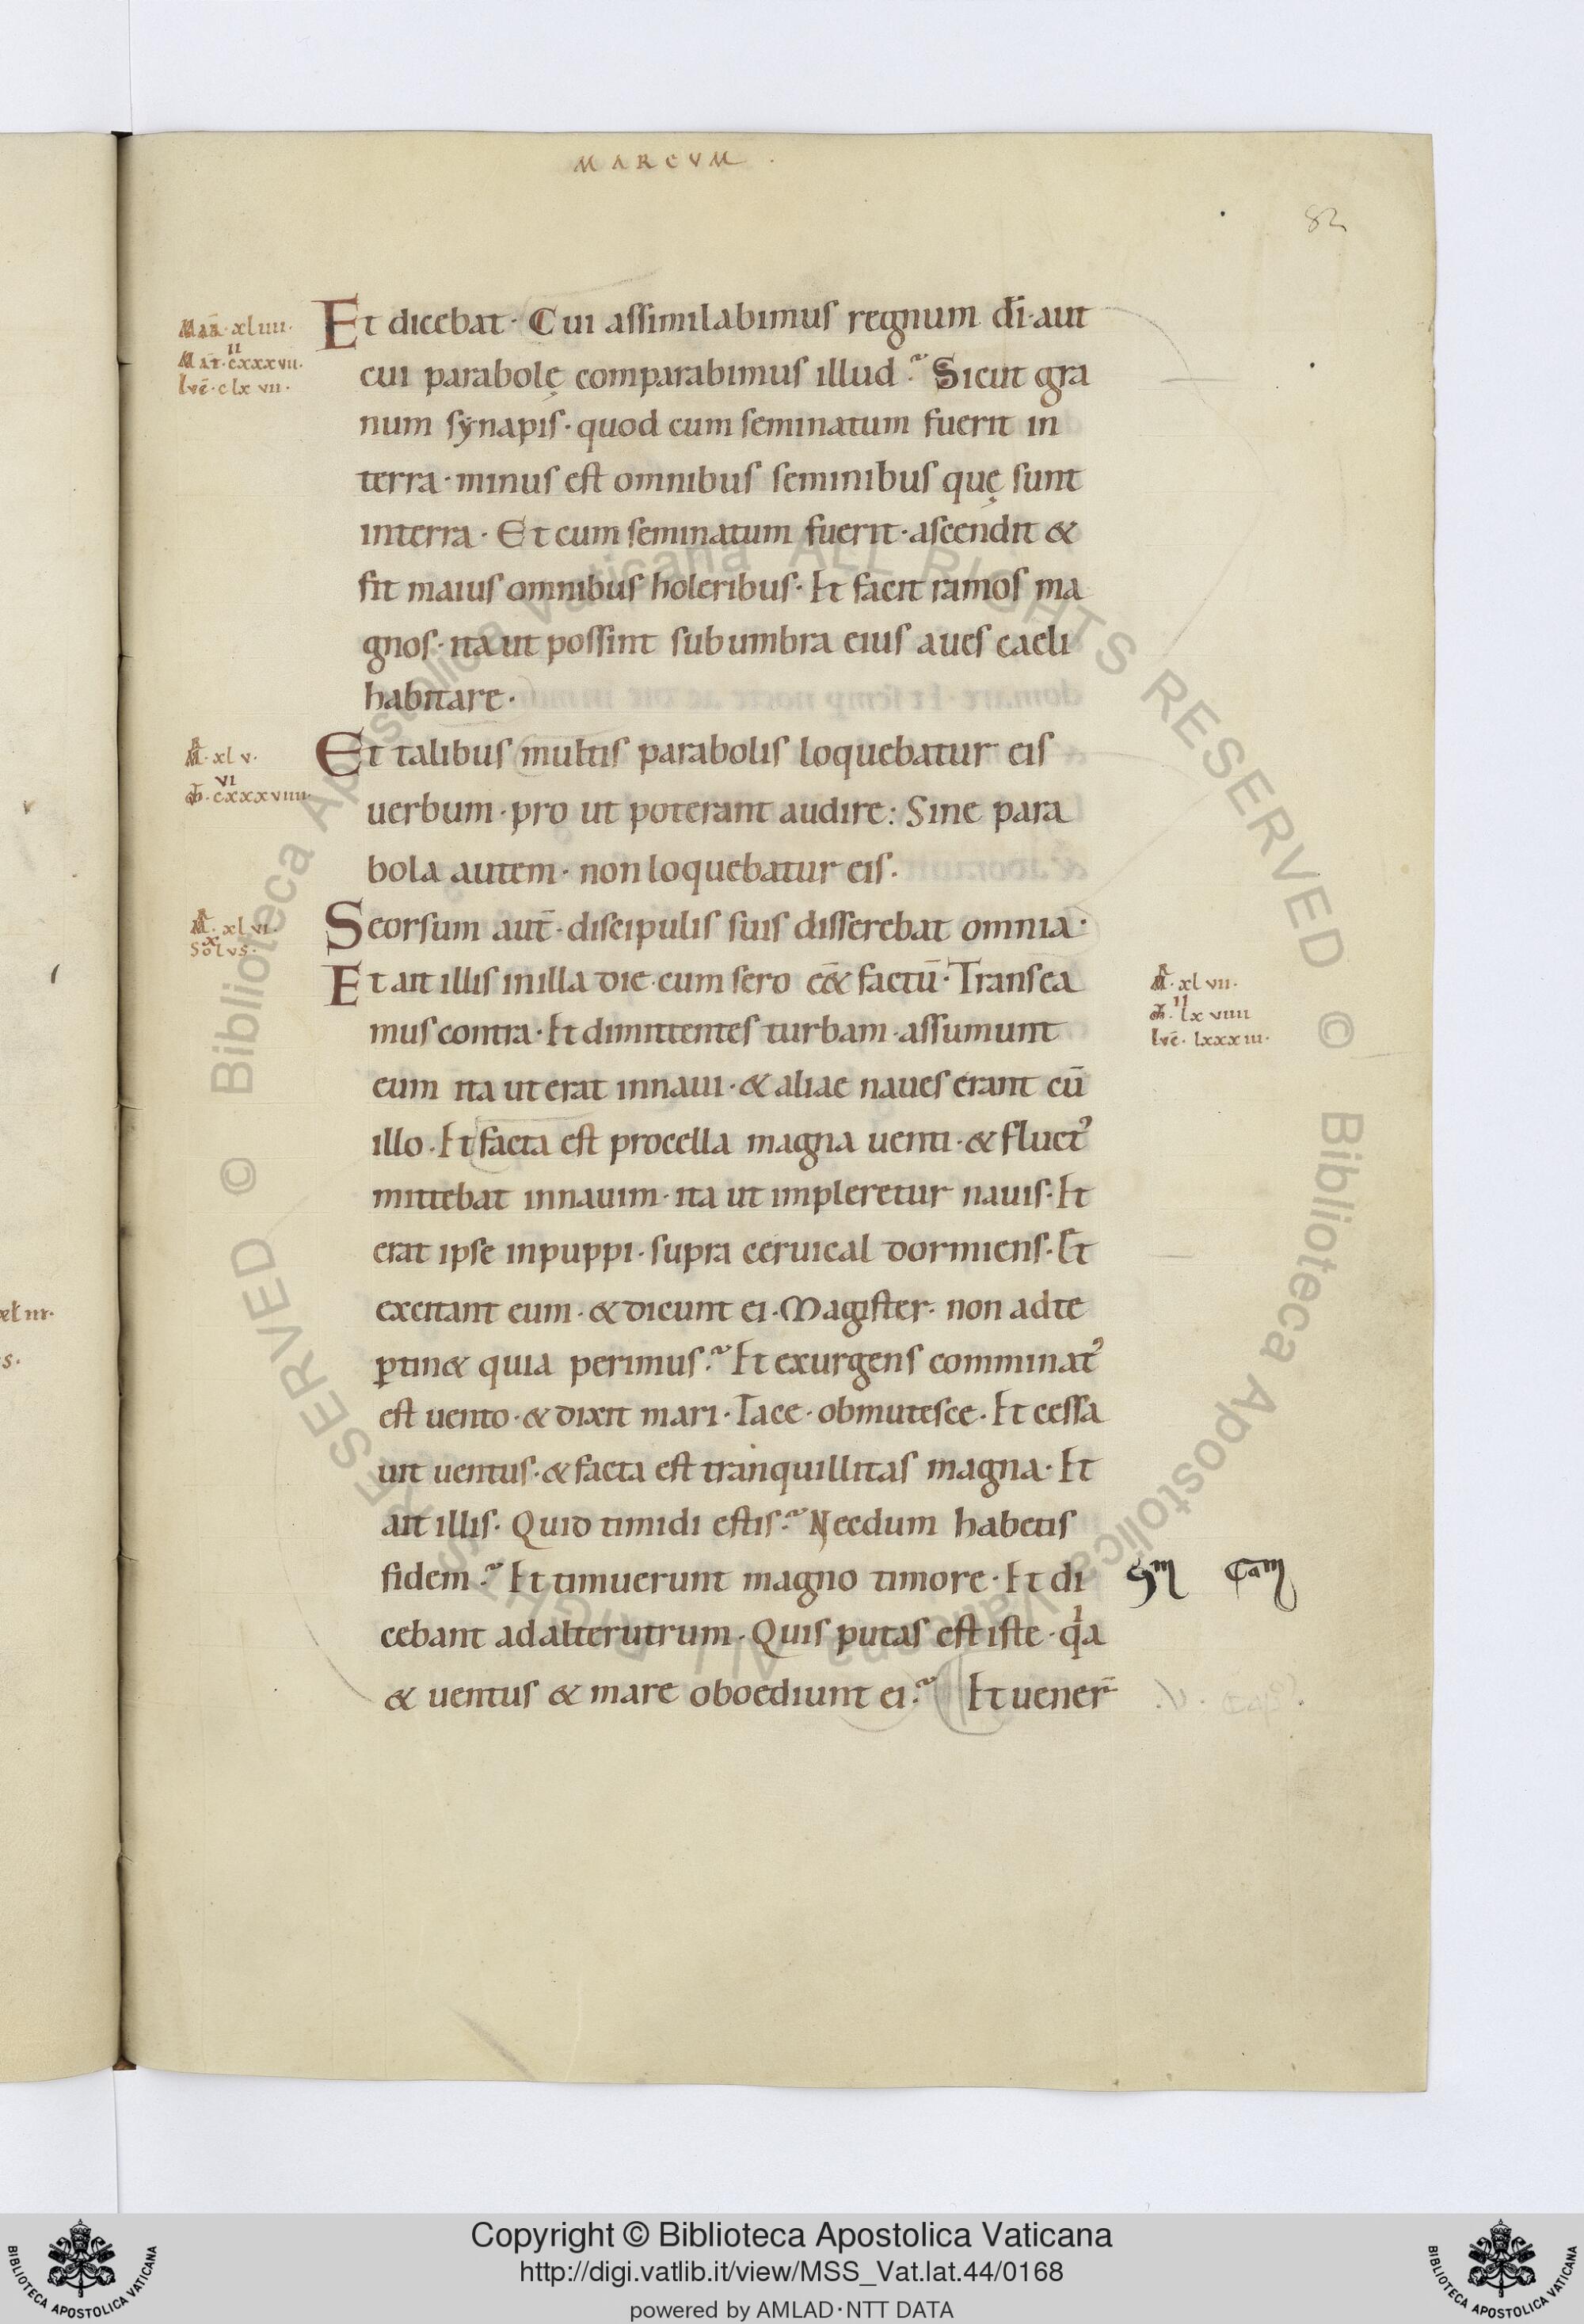 MARCVM
82
Mar̄. xl iiii.
II
Mat̄. cxxxvii.
Lvc̄. clx vii.
Et dicebat· Cui assimilabimus regnum dī· aut
cui parabolę comparabimus illud? Sicut gra
num synapis· quod cum seminatum fuerit in
terra· minus est omnibus seminibus quę sunt
interra· Et cum seminatum fuerit· ascendit &
fit maius omnibus holeribus· Et facit ramos ma
gnos· ita ut possint sub umbra eius aues caeli
habitare·
xl v.
VI
cxxxviiii.
Et talibus multis parabolis loquebatur eis
uerbum· pro ut poterant audire: Sine para
bola autem· non loquebatur eis·
xl vi.
X
Solvs.
Seorsum aut̄· discipulis suis disserebat omnia·
Et ait illis inilla die· cum sero eē& factū· Transea
mus contra· Et dimittentes turbam· assumunt
xl vii.
II
lx viiii
Lvc̄. lxxxiii.
eum ita ut erat innaui· & aliae naues erant cū
illo· Et facta est procella magna uenti· & fluct᾽
mittebat innauim· ita ut impleretur nauis· Et
erat ipse inpuppi· supra ceruical dormiens· Et
excitant eum· & dicunt ei· Magister· non adte
ꝑtin& quia perimus? Et exurgens comminat᾽
est uento· & dixit mari· Tace· obmutesce· Et cessa
uit uentus· & facta est tranquillitas magna· Et
ait illis· Quid timidi estis? Necdum habetis
fidem? Et timuerunt magno timore· Et di
cebant adalterutrum· Quis putas est iste· qⁱa
& uentus & mare oboediunt ei? Et uener̄
xl iii.
s.
Copyright © Biblioteca Apostolica Vaticana
http://digi.vatlib.it/view/MSS_Vat.lat.44/0168
powered by AMLAD·NTT DATA
BIBLIOTECA APOSTOLICA VATICANA
BIBLIOTECA APOSTOLICA VATICANA
© Biblioteca Apostolica Vaticana ALL RIGHTS RESERVED
© Biblioteca Apostolica Vaticana ALL RIGHTS RESERVED